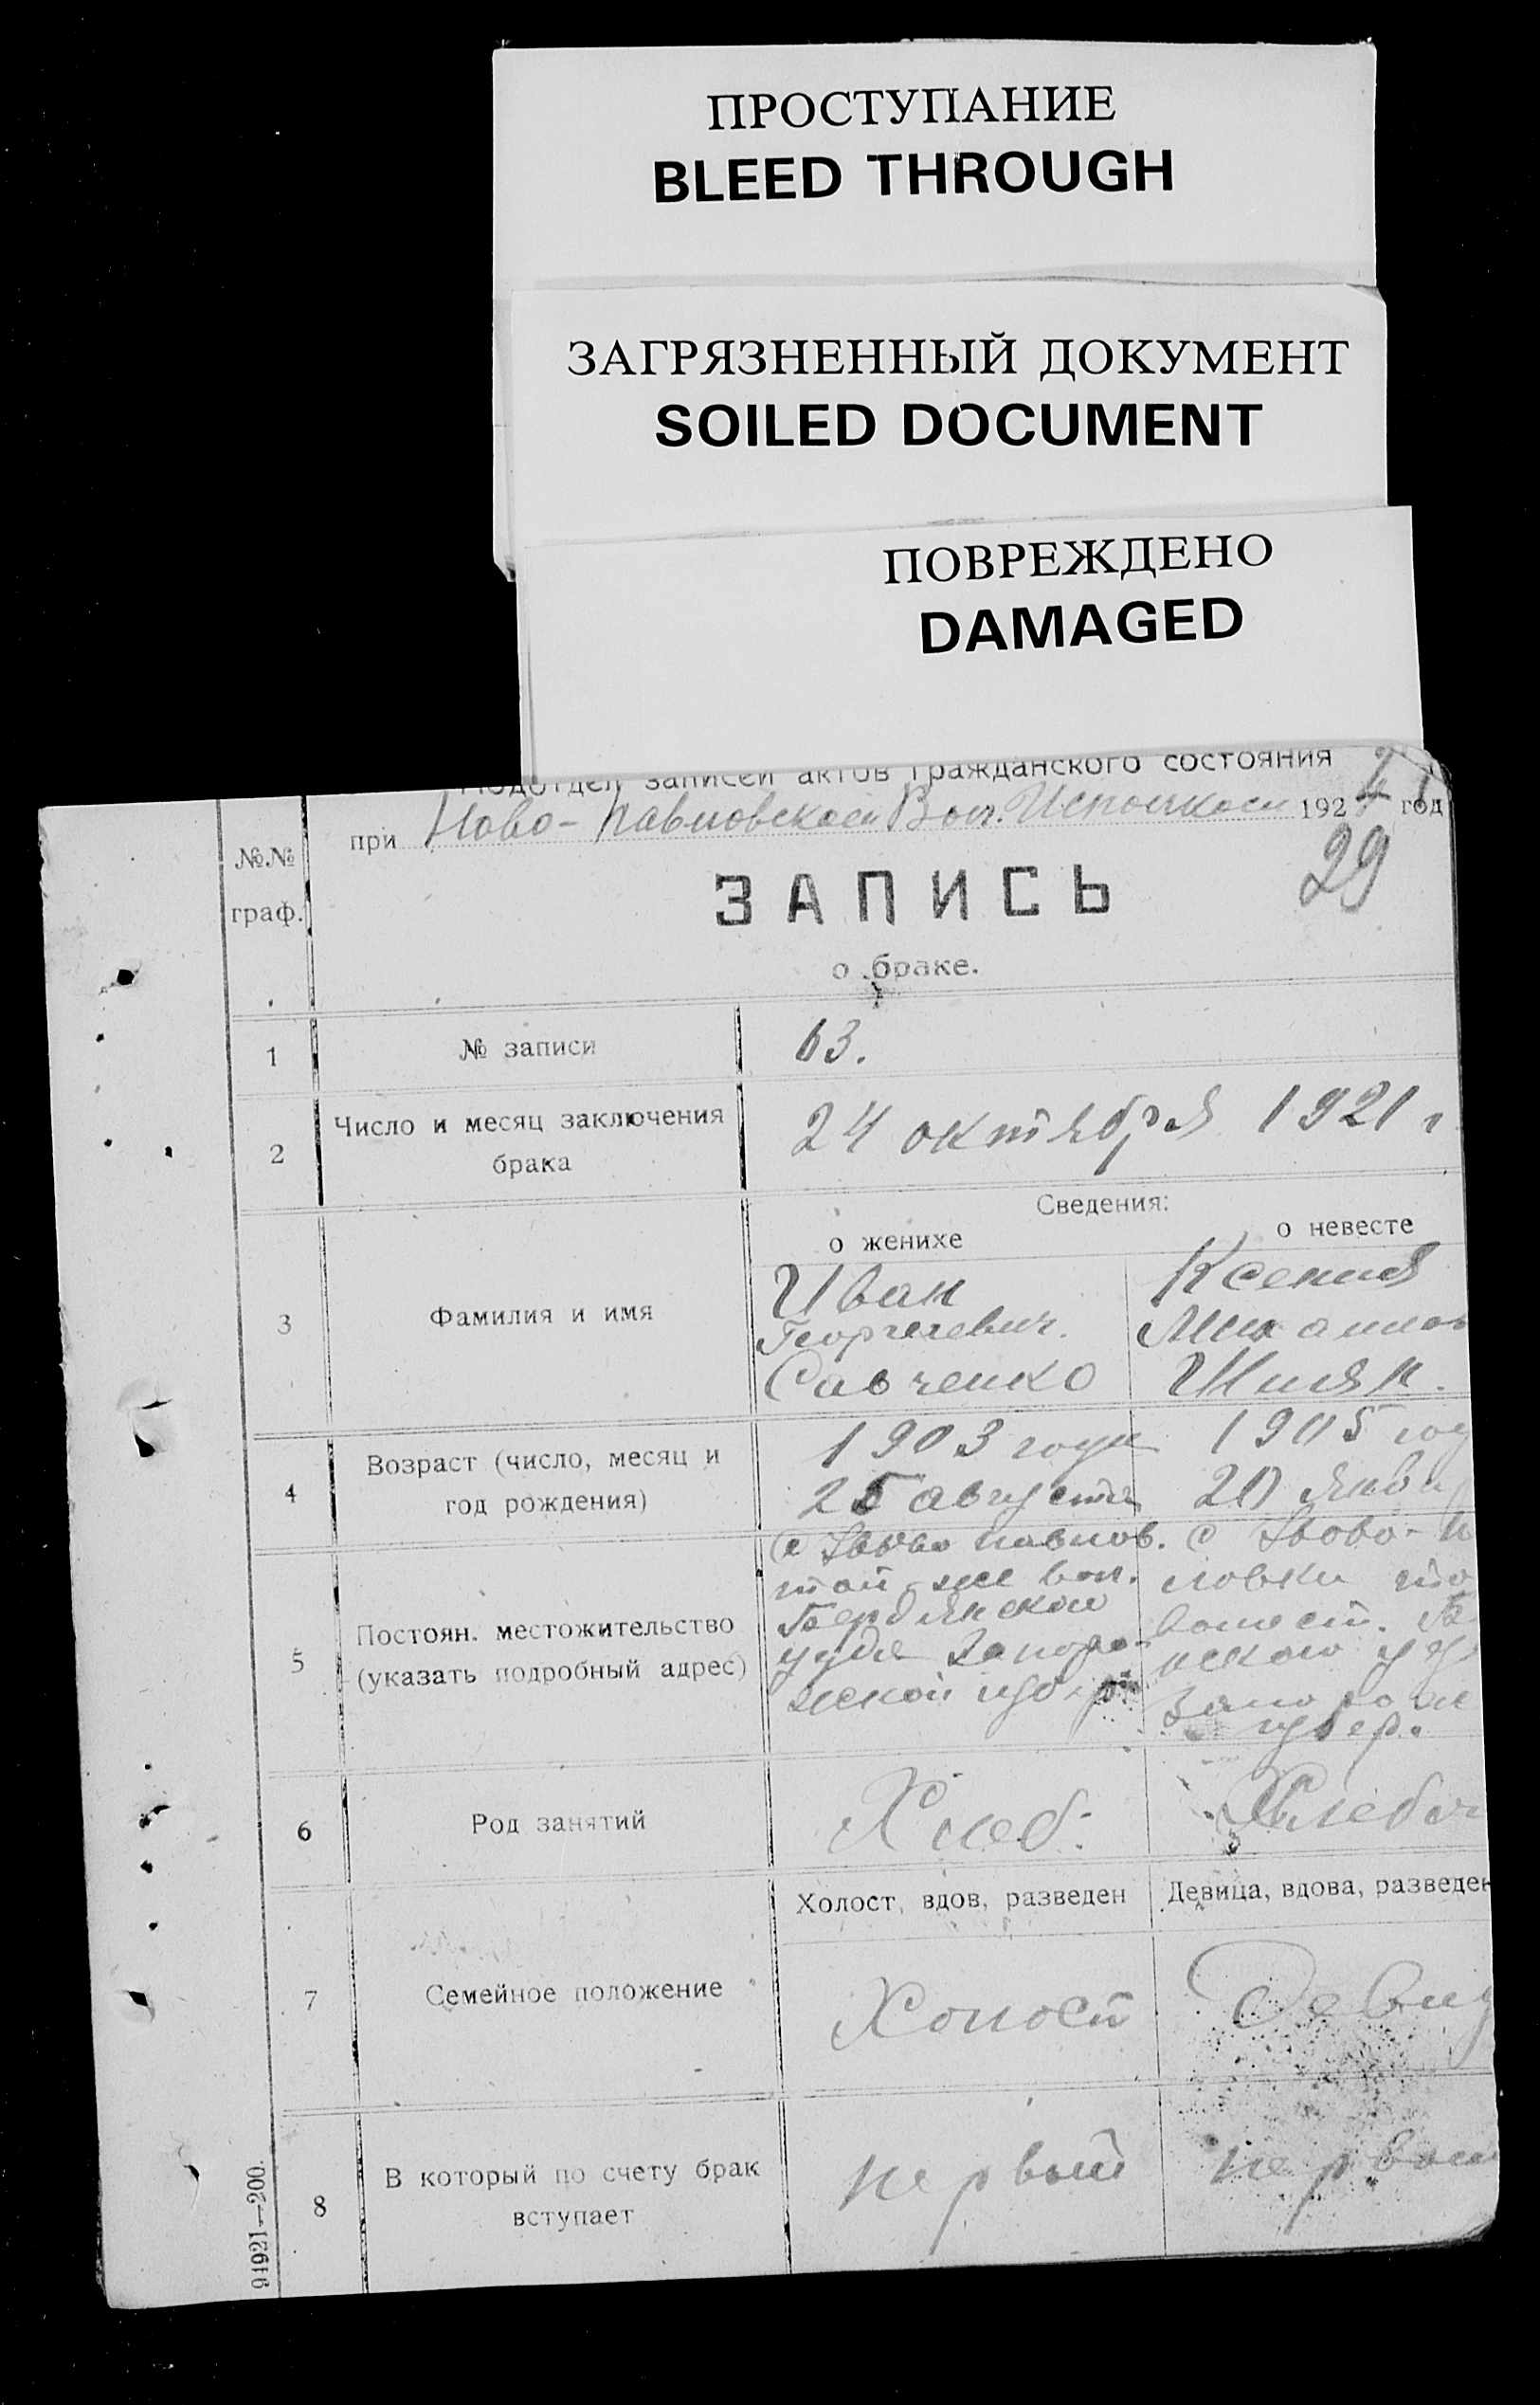 ПРОСТУПАНИЕ
BLEED THROUGH
ЗАГРЯЗНЕННЫЙ ДОКУМЕНТ
SOILED DOCUMENT
ПОВРЕЖДЕНО
DAMAGED
Подотдел записей актов гражданского состояния
при Ново-Павловской Вол. Исполкоми 192 год
29
№№ граф.
ЗАПИСЬ
о браке.
1 № записи 63.
2 Число и месяц заключения брака 24 октября 1921 г
Сведения:
о женихе о невесте
3 Фамилия и имя
Иван Ксения
Георгиевич. Михайлов
Савченко Шляк.
4 Возраст (число, месяц и год рождения)
1903 года 1905 год
25 августа 20 янва
5 Постоян. местожительство (указать подробный адрес)
с Ново Павлов. с Ново-П
той-же вол. ловки то
Бердянской волост. Б
уезда Запоро- ского уез
жской губер Запорож
губер.
6 Род занятий Хлеб. Хлебоп
Холост, вдов, разведен Девица, вдова, разведен
7 Семейное положение Холост Девиц
8 В который по счету брак вступает первый первый
94921—200.